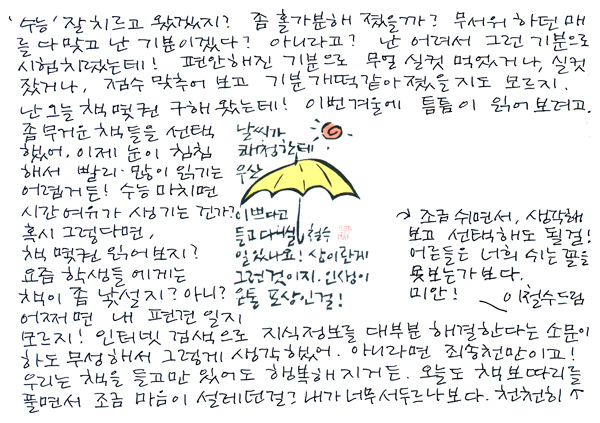 '수능' 잘 치르고 왔겠지? 좀 홀가분해 졌을까? 무서워 하던 매
를 다 맞고 난 기분이겠다? 아니라고? 난 어려서 그런 기분으로
시험치렀는데! 편안해진 기분으로 무얼 실컷 먹었거나, 실컷
잤거나, 점수 맞추어 보고 기분 개떡 같아 졌을지도 모르지.
난 오늘 책 몇권 구해 왔는데! 이번겨울에 틈틈이 읽어보려고.
좀 무거운 책들을 선택
했어. 이제 눈이 침침
해서 빨리·많이 읽기는
어렵거든! 수능 마치면
시간여유가 생기는 건가?
혹시 그렇다면,
책 몇권 읽어보지?
요즘 학생들에게는
책이 좀 낯설지? 아니?
어쩌면 내 편견일지
모르지! 인터넷 검색으로 지식정보를 대부분 해결한다는 소문이
하도 무성해서 그렇게 생각했어. 아니라면 죄송천만이고!
우리는 책을 들고만 있어도 행복해지거든. 오늘도 책보따리를
풀면서 조금 마음이 설레던걸? 내가 너무 서두르나보다. 천천히
→ 조금 쉬면서, 생각해
보고 선택해도 될걸!
어른들은 너희 쉬는 꼴을
못보는가보다.
미안!
이철수드림
날씨가
쾌청한데
우산
이쁘다고
들고 다닐
일 있나요! 삶이란게
그런것이지. 인생이
온통 포상인걸!
철수